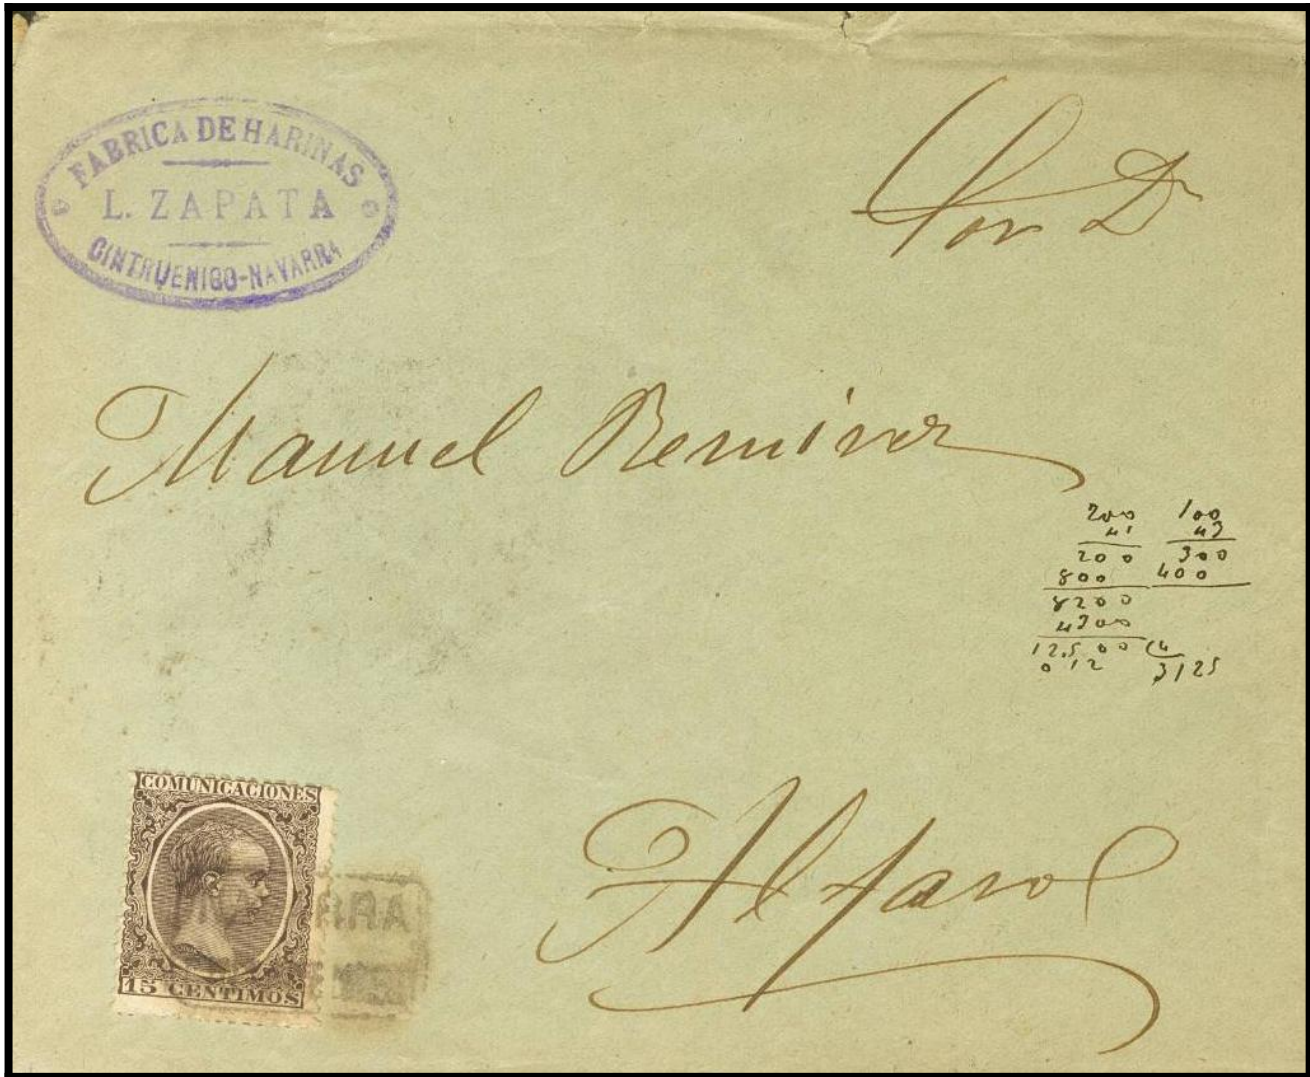 FABRICA DE HARINAS
L. ZAPATA
CINTRUENIGO-NAVARRA
Sor Dn
Manuel Remirez
200 100
41 43
200 300
800 400
8200
4300
12,500 4
012 3125
Alfaro
COMUNICACIONES
15 CENTIMOS